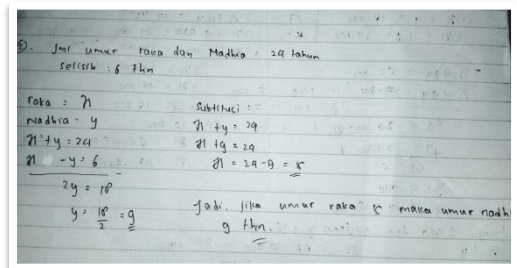 5). Jml umur raka dan Nadhia = 24 tahun
selisih = 6 thn
raka = x
Nadhia = y
x + y = 24
x - y = 6
2y = 18
y = 18/2 = 9
Subtitusi :
x + y = 24
x + 9 = 24
x = 24 - 9 = 15
Jadi, jika umur raka 15 maka umur nadh
9 thn.